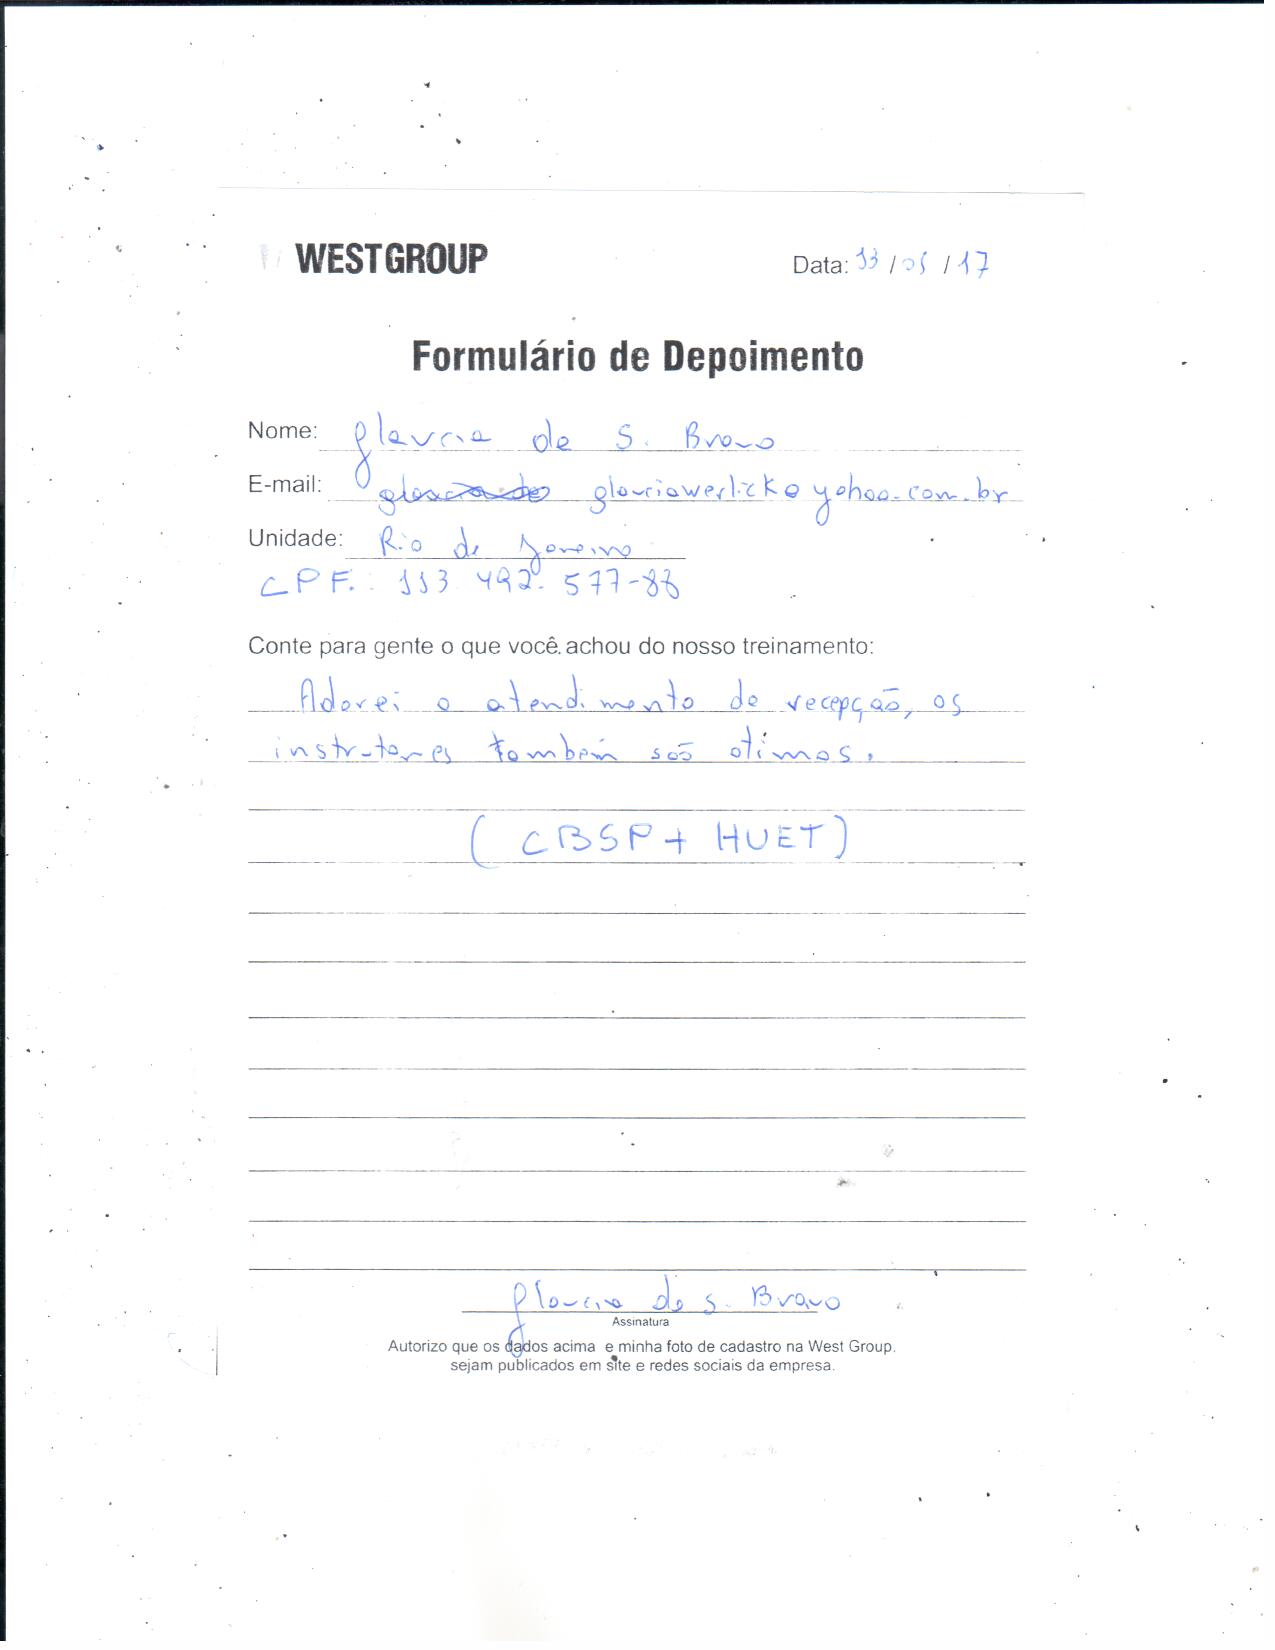 WEST GROUP
Data: 13 / 05 / 17
Formulário de Depoimento
Nome: Glaucia de S. Bravo
E-mail: glauciawerlick@yahoo.com.br
Unidade: Rio de Janeiro
CPF.: 113.492.577-88
Conte para gente o que você achou do nosso treinamento:
Adorei o atendimento da recepção, os
instrutores também são otimos.
(CBSP + HUET)
Glaucia de S. Bravo
Assinatura
Autorizo que os dados acima e minha foto de cadastro na West Group.
sejam publicados em site e redes sociais da empresa.